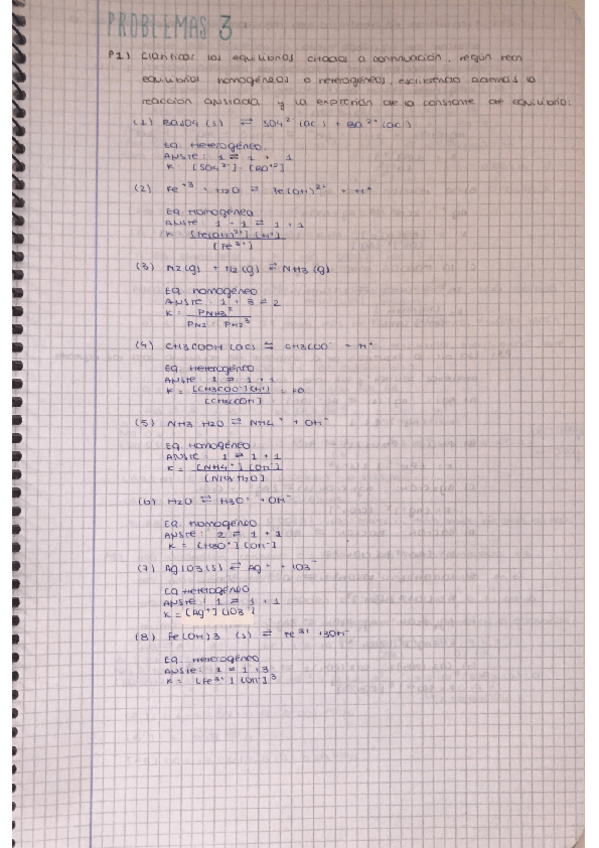 PROBLEMAS 3
P1) Clasificar los equilibrios citados a continuación, según sean
equilibrios homogéneos o heterogéneos, escribiendo además la
reacción ajustada y la expresión de la constante de equilibrio:
(1) BaSO4 (s) ⇌ SO4²⁻ (ac) + Ba²⁺ (ac)
EQ. Heterogéneo.
AJUSTE: 1 ⇌ 1 + 1
K = [SO4²⁻] · [Ba⁺²]
(2) Fe⁺³ + H2O ⇌ Fe(OH)²⁺ + H⁺
EQ. Homogéneo
AJUSTE: 1 + 1 ⇌ 1 + 1
K = [Fe(OH)²⁺] [H⁺]
[Fe³⁺]
(3) N2 (g) + H2 (g) ⇌ NH3 (g)
EQ. homogéneo
AJUSTE: 1 + 3 ⇌ 2
K = PNH3²
PN2 · PH2³
(4) CH3COOH (ac) ⇆ CH3COO⁻ + H⁺
EQ. Heterogéneo
AJUSTE: 1 ⇌ 1 + 1
K = [CH3COO⁻] [H⁺]
[CH3COOH]
(5) NH3 H2O ⇌ NH4⁺ + OH⁻
EQ. Homogéneo
AJUSTE: 1 ⇌ 1 + 1
K = [NH4⁺] [OH⁻]
[NH3 H2O]
(6) H2O ⇌ H3O⁺ + OH⁻
EQ. Homogéneo
AJUSTE: 2 ⇌ 1 + 1
K = [H3O⁺] [OH⁻]
(7) AgIO3 (s) ⇌ Ag⁺ + IO3⁻
EQ Heterogéneo
AJUSTE: 1 ⇌ 1 + 1
K = [Ag⁺] [IO3⁻]
(8) Fe(OH)3 (s) ⇌ Fe³⁺ + 3OH⁻
EQ. Heterogéneo
AJUSTE: 1 ⇌ 1 + 3
K = [Fe³⁺] [OH⁻]³